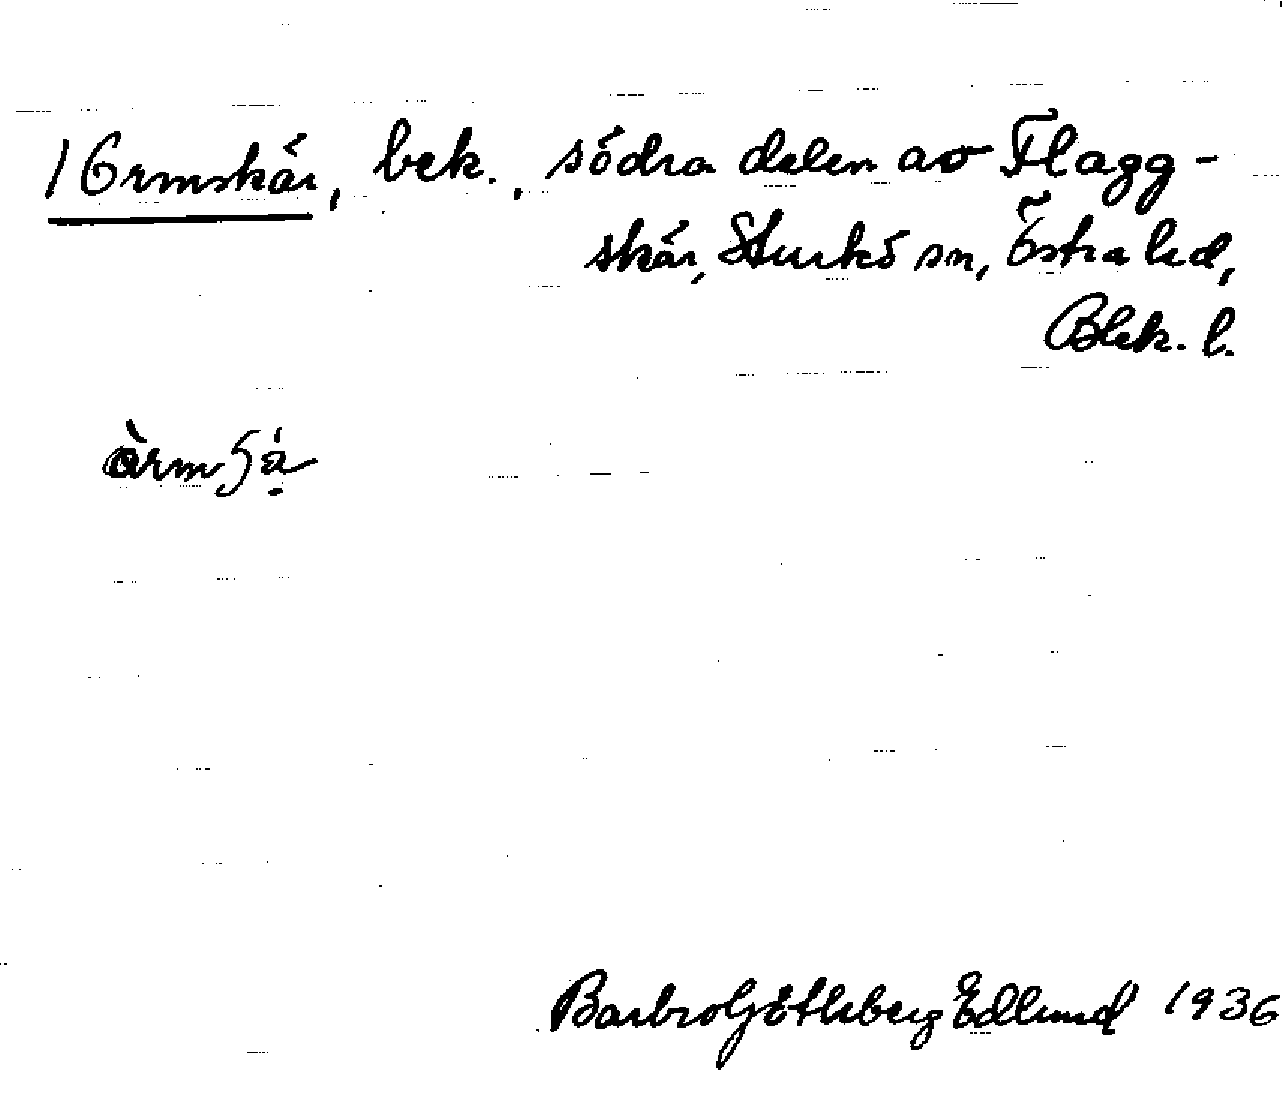 1 Ormskär, bek., södra delen av Flagg-
skär, Sturkö sn, Östra hd,
Blek. l.
Barbro Götleberg Edlund 1936